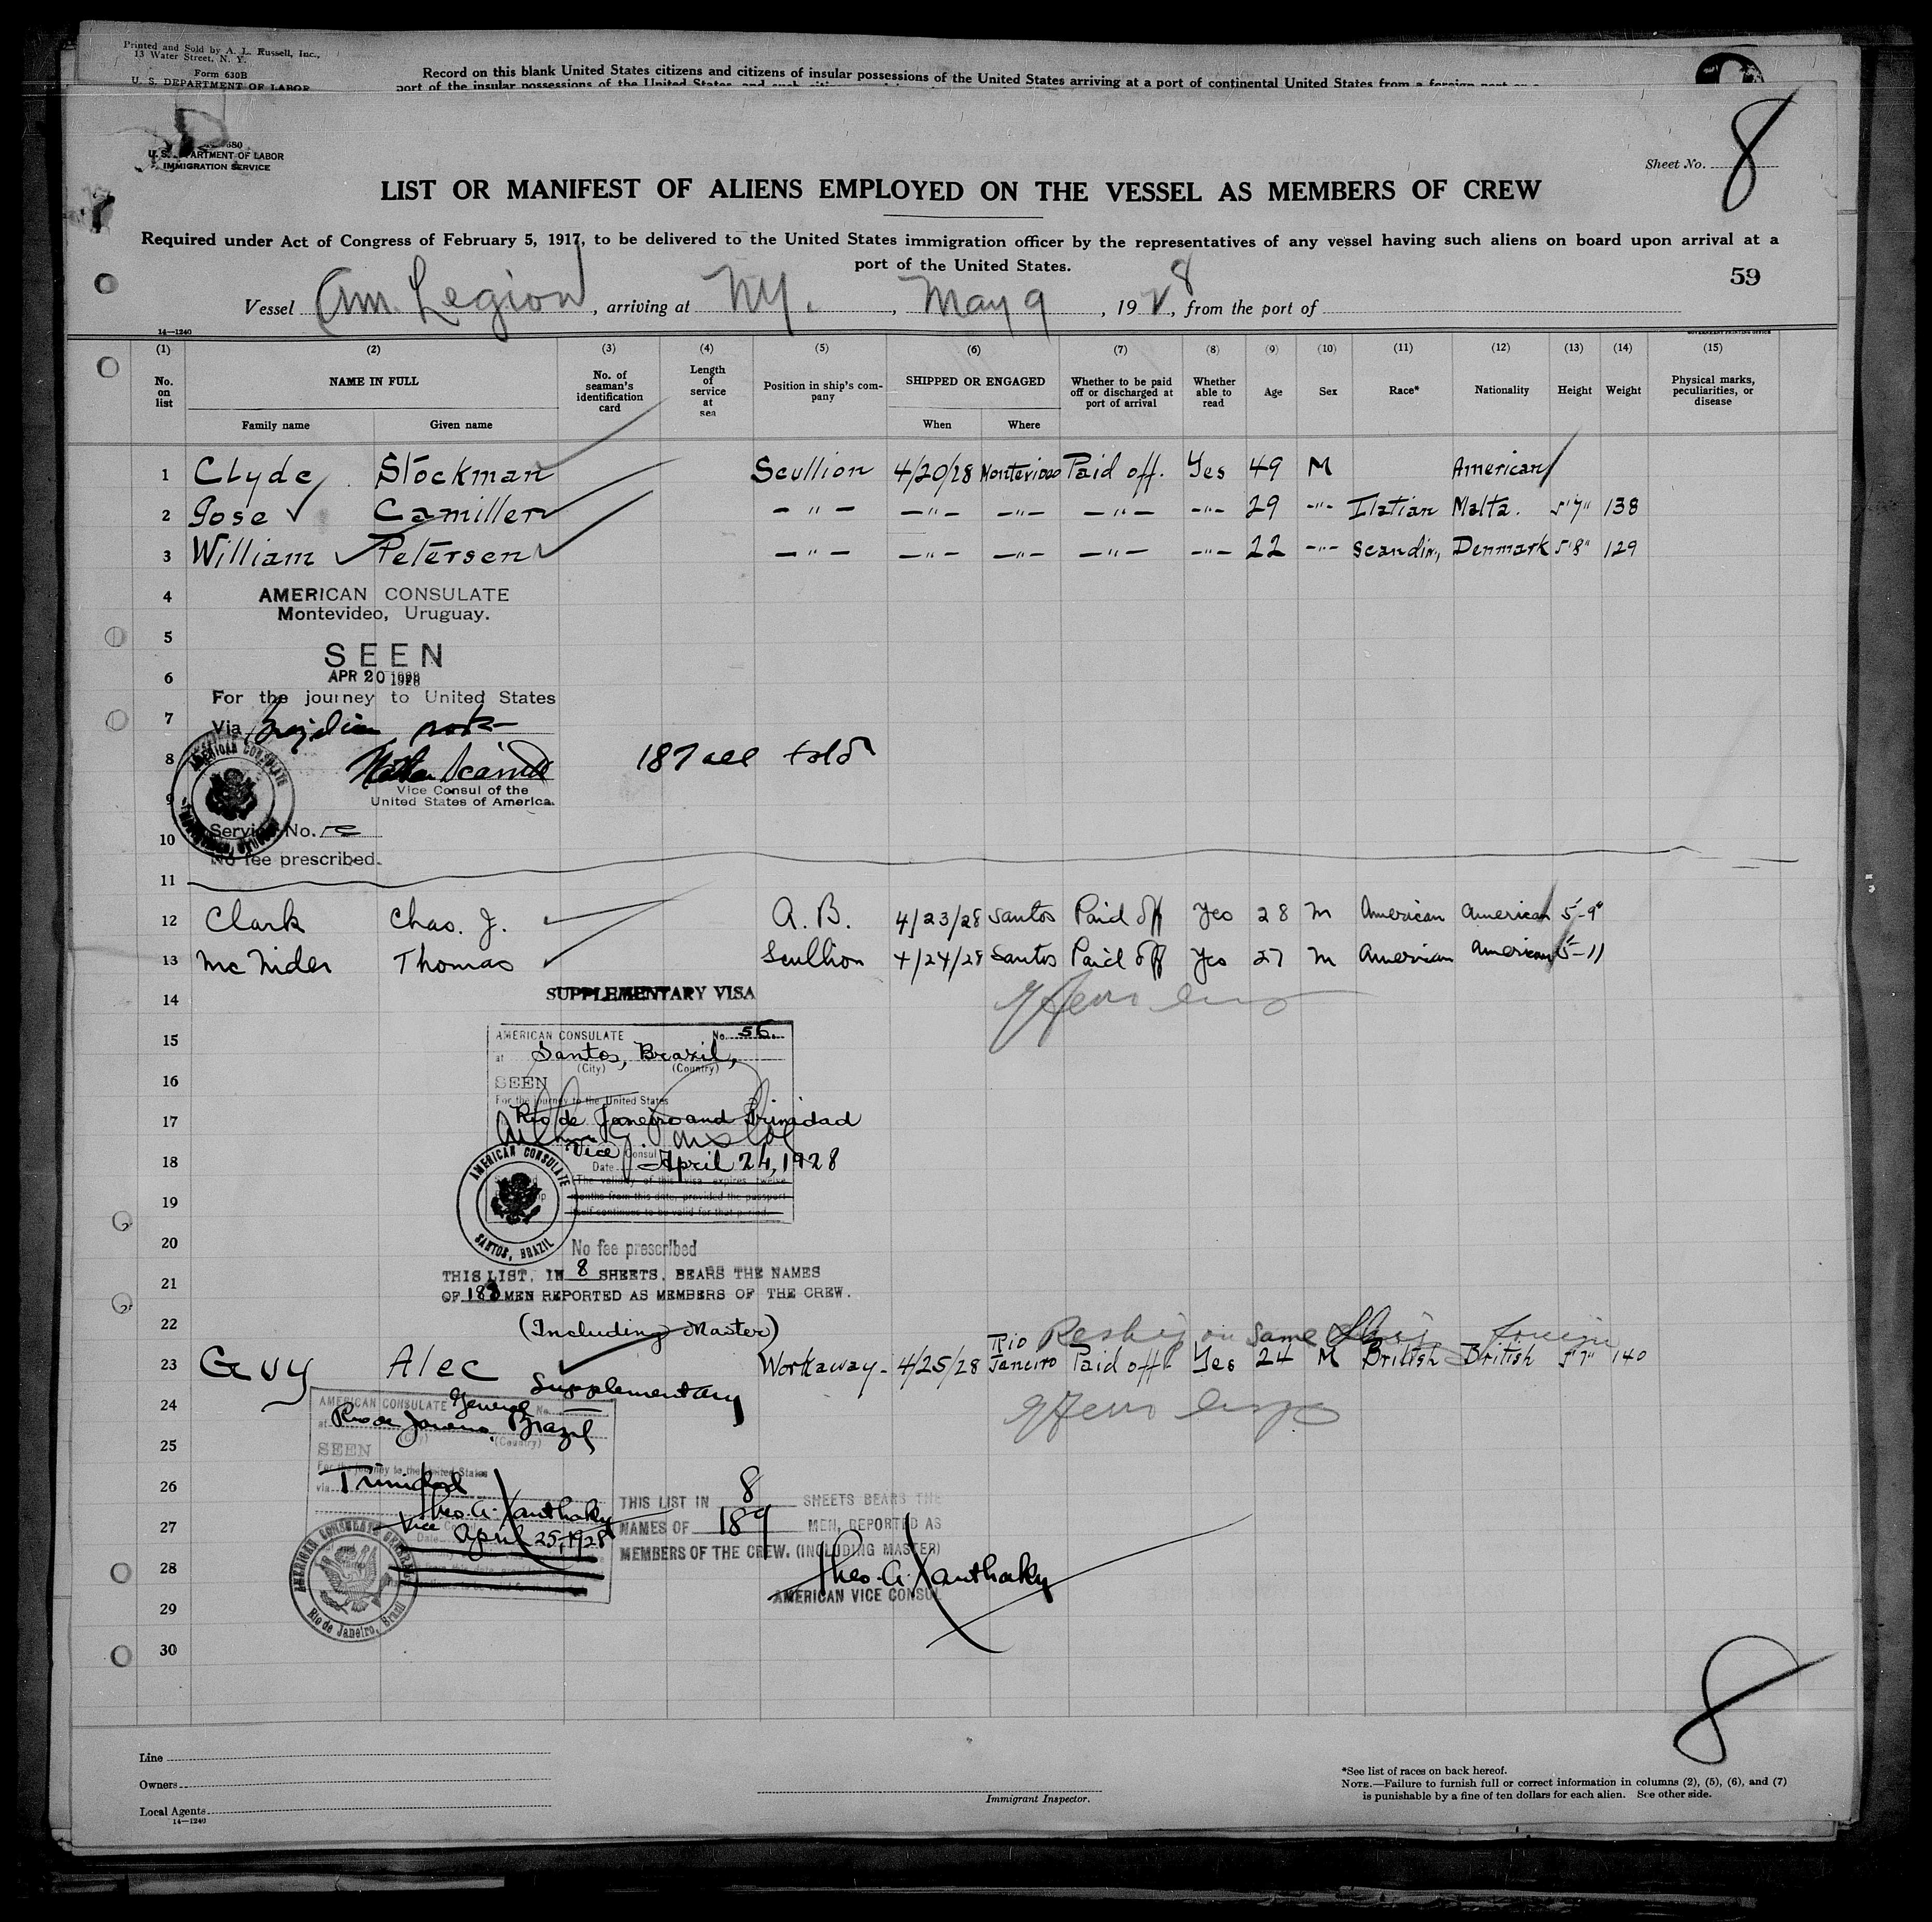 Printed and Sold by A. L. Russell, Inc.,
13 Water Street, N. Y.
Form 630B
U. S. DEPARTMENT OF LABOR
Record on this blank United States citizens and citizens of insular possessions of the United States arriving at a port of continental United States from a foreign port or a
port of the insular possessions of the United States, and such
680
U. S. DEPARTMENT OF LABOR
IMMIGRATION SERVICE
Sheet No. 8
LIST OR MANIFEST OF ALIENS EMPLOYED ON THE VESSEL AS MEMBERS OF CREW
Required under Act of Congress of February 5, 1917, to be delivered to the United States immigration officer by the representatives of any vessel having such aliens on board upon arrival at a
port of the United States.
59
Vessel Am. Legion, arriving at N.Y., May 9, 1928, from the port of
14—1240
GOVERNMENT PRINTING OFFICE
(1) (2) (3) (4) (5) (6) (7) (8) (9) (10) (11) (12) (13) (14) (15)
No. on list NAME IN FULL No. of seaman's identification card Length of service at sea Position in ship's company SHIPPED OR ENGAGED Whether to be paid off or discharged at port of arrival Whether able to read Age Sex Race* Nationality Height Weight Physical marks, peculiarities, or disease
Family name Given name When Where
1 Clyde Stockman Scullion 4/20/28 Montevideo Paid off. Yes 49 M American
2 Jose Camiller — " — — " — — " — — " — -"- 29 -"- Italian Malta. 5'7" 138
3 William Petersen — " — — " — — " — — " — -"- 22 -"- Scandin, Denmark 5'8" 129
4
AMERICAN CONSULATE
Montevideo, Uruguay.
5
SEEN
6
APR 20 1928
For the journey to United States
7
Via Brazilian ports
8
187 all told
Vice Consul of the
United States of America.
9
AMERICAN CONSULATE
Service No.
10
No fee prescribed.
11
12 Clark Chas. J. A. B. 4/23/28 Santos Paid off Yes 28 M American American 5'-9"
13 McNider Thomas Scullion 4/24/28 Santos Paid off Yes 27 M American American 5'-11
14
SUPPLEMENTARY VISA
15
AMERICAN CONSULATE No. 56.
at Santos, Brazil,
(City) (Country)
16
SEEN
For the journey to the United States
17
Rio de Janeiro and Trinidad
Vice Consul
18
Date April 24, 1928
The validity of this visa expires twelve
19
months from this date, provided the passport
itself continues to be valid for that period.
AMERICAN CONSULATE
SANTOS, BRAZIL
20
No fee prescribed
21
THIS LIST, IN 8 SHEETS, BEARS THE NAMES
OF 188 MEN REPORTED AS MEMBERS OF THE CREW.
22
(Including Master)
Reship on same
23 Guy Alec Workaway - 4/25/28 Rio Janeiro Paid off. Yes 24 M British British 5'7" 140
Supplementary
24
AMERICAN CONSULATE General No.
at Rio de Janeiro, Brazil
(City) (Country)
25
SEEN
For the journey to the United States
26
via Trinidad
Theo. A. Xanthaky
27
Vice
Date April 25, 1928
28
29
30
AMERICAN CONSULATE GENERAL
Rio de Janeiro, Brazil
THIS LIST IN 8 SHEETS BEARS THE
NAMES OF 189 MEN, REPORTED AS
MEMBERS OF THE CREW. (INCLUDING MASTER)
Theo. A. Xanthaky
AMERICAN VICE CONSUL
8
Line
Owners
Local Agents
14—1240
Immigrant Inspector.
*See list of races on back hereof.
NOTE.—Failure to furnish full or correct information in columns (2), (5), (6), and (7)
is punishable by a fine of ten dollars for each alien. See other side.